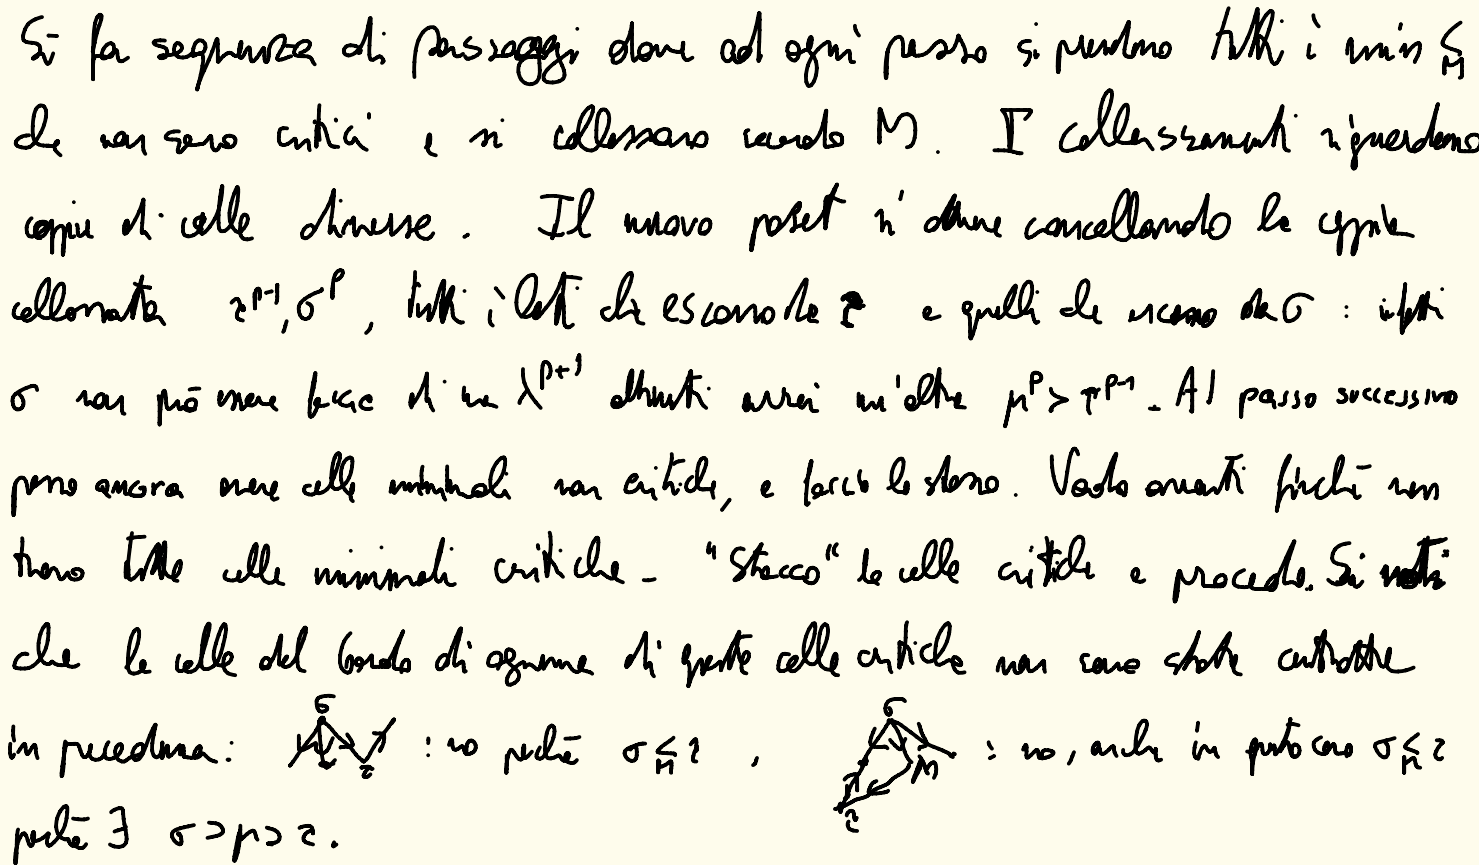 Si fa sequenza di passaggi dove ad ogni passo si prendono tutti i min ≤_M
che non sono critici e si collassano secondo M. I collassamenti riguardano
coppie di celle diverse. Il nuovo poset si ottiene cancellando la coppia
collassata τ^{p-1}, σ^p, tutti i lati che escono da τ e quelli che escono da σ : infatti
σ non può essere faccia di una λ^{p+1} altrimenti avrei un'altra μ^p > τ^{p-1}. Al passo successivo
posso ancora avere celle minimali non critiche, e faccio lo stesso. Vado avanti finché non
trovo tutte celle minimali critiche. "Stacco" le celle critiche e procedo. Si noti
che le celle del bordo di ognuna di queste celle critiche non sono state contratte
in precedenza: σ τ : no perché σ ≤_M τ , σ μ τ : no, anche in questo caso σ ≤_M τ
perché ∃ σ > μ > τ.